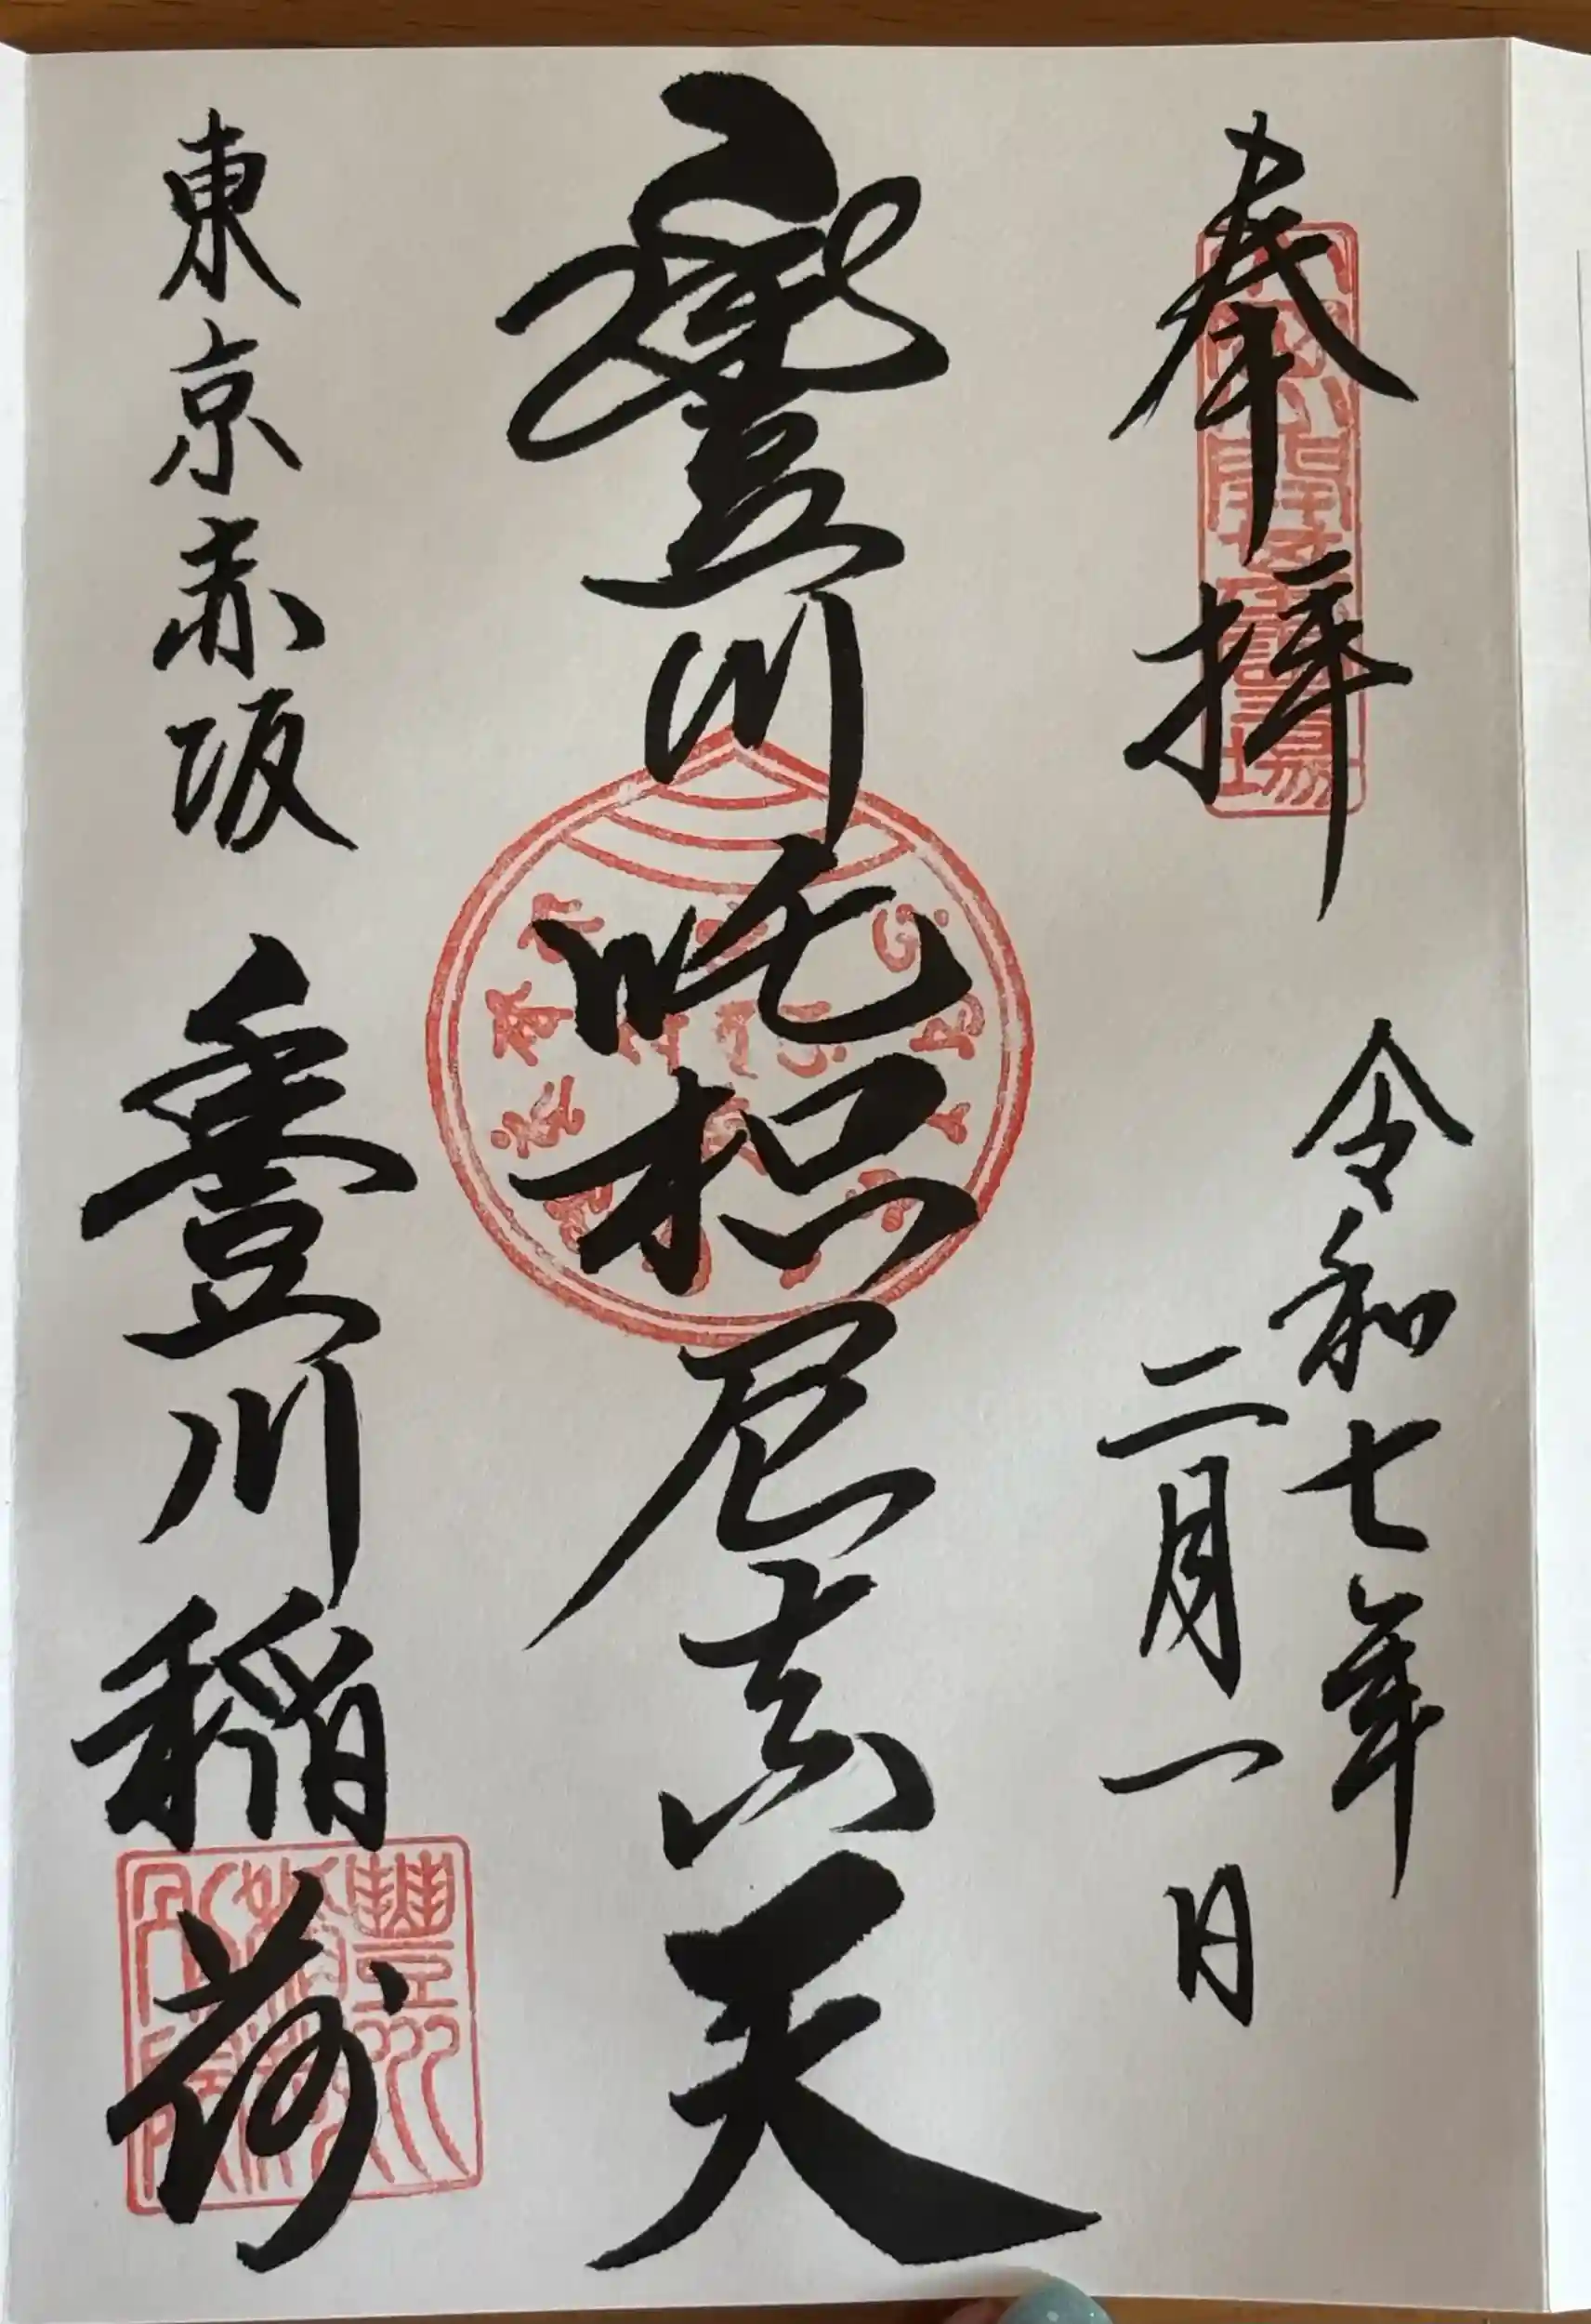 奉拝
令和七年
二月一日
豊川吒枳尼真天
東京赤坂
豊川稲荷